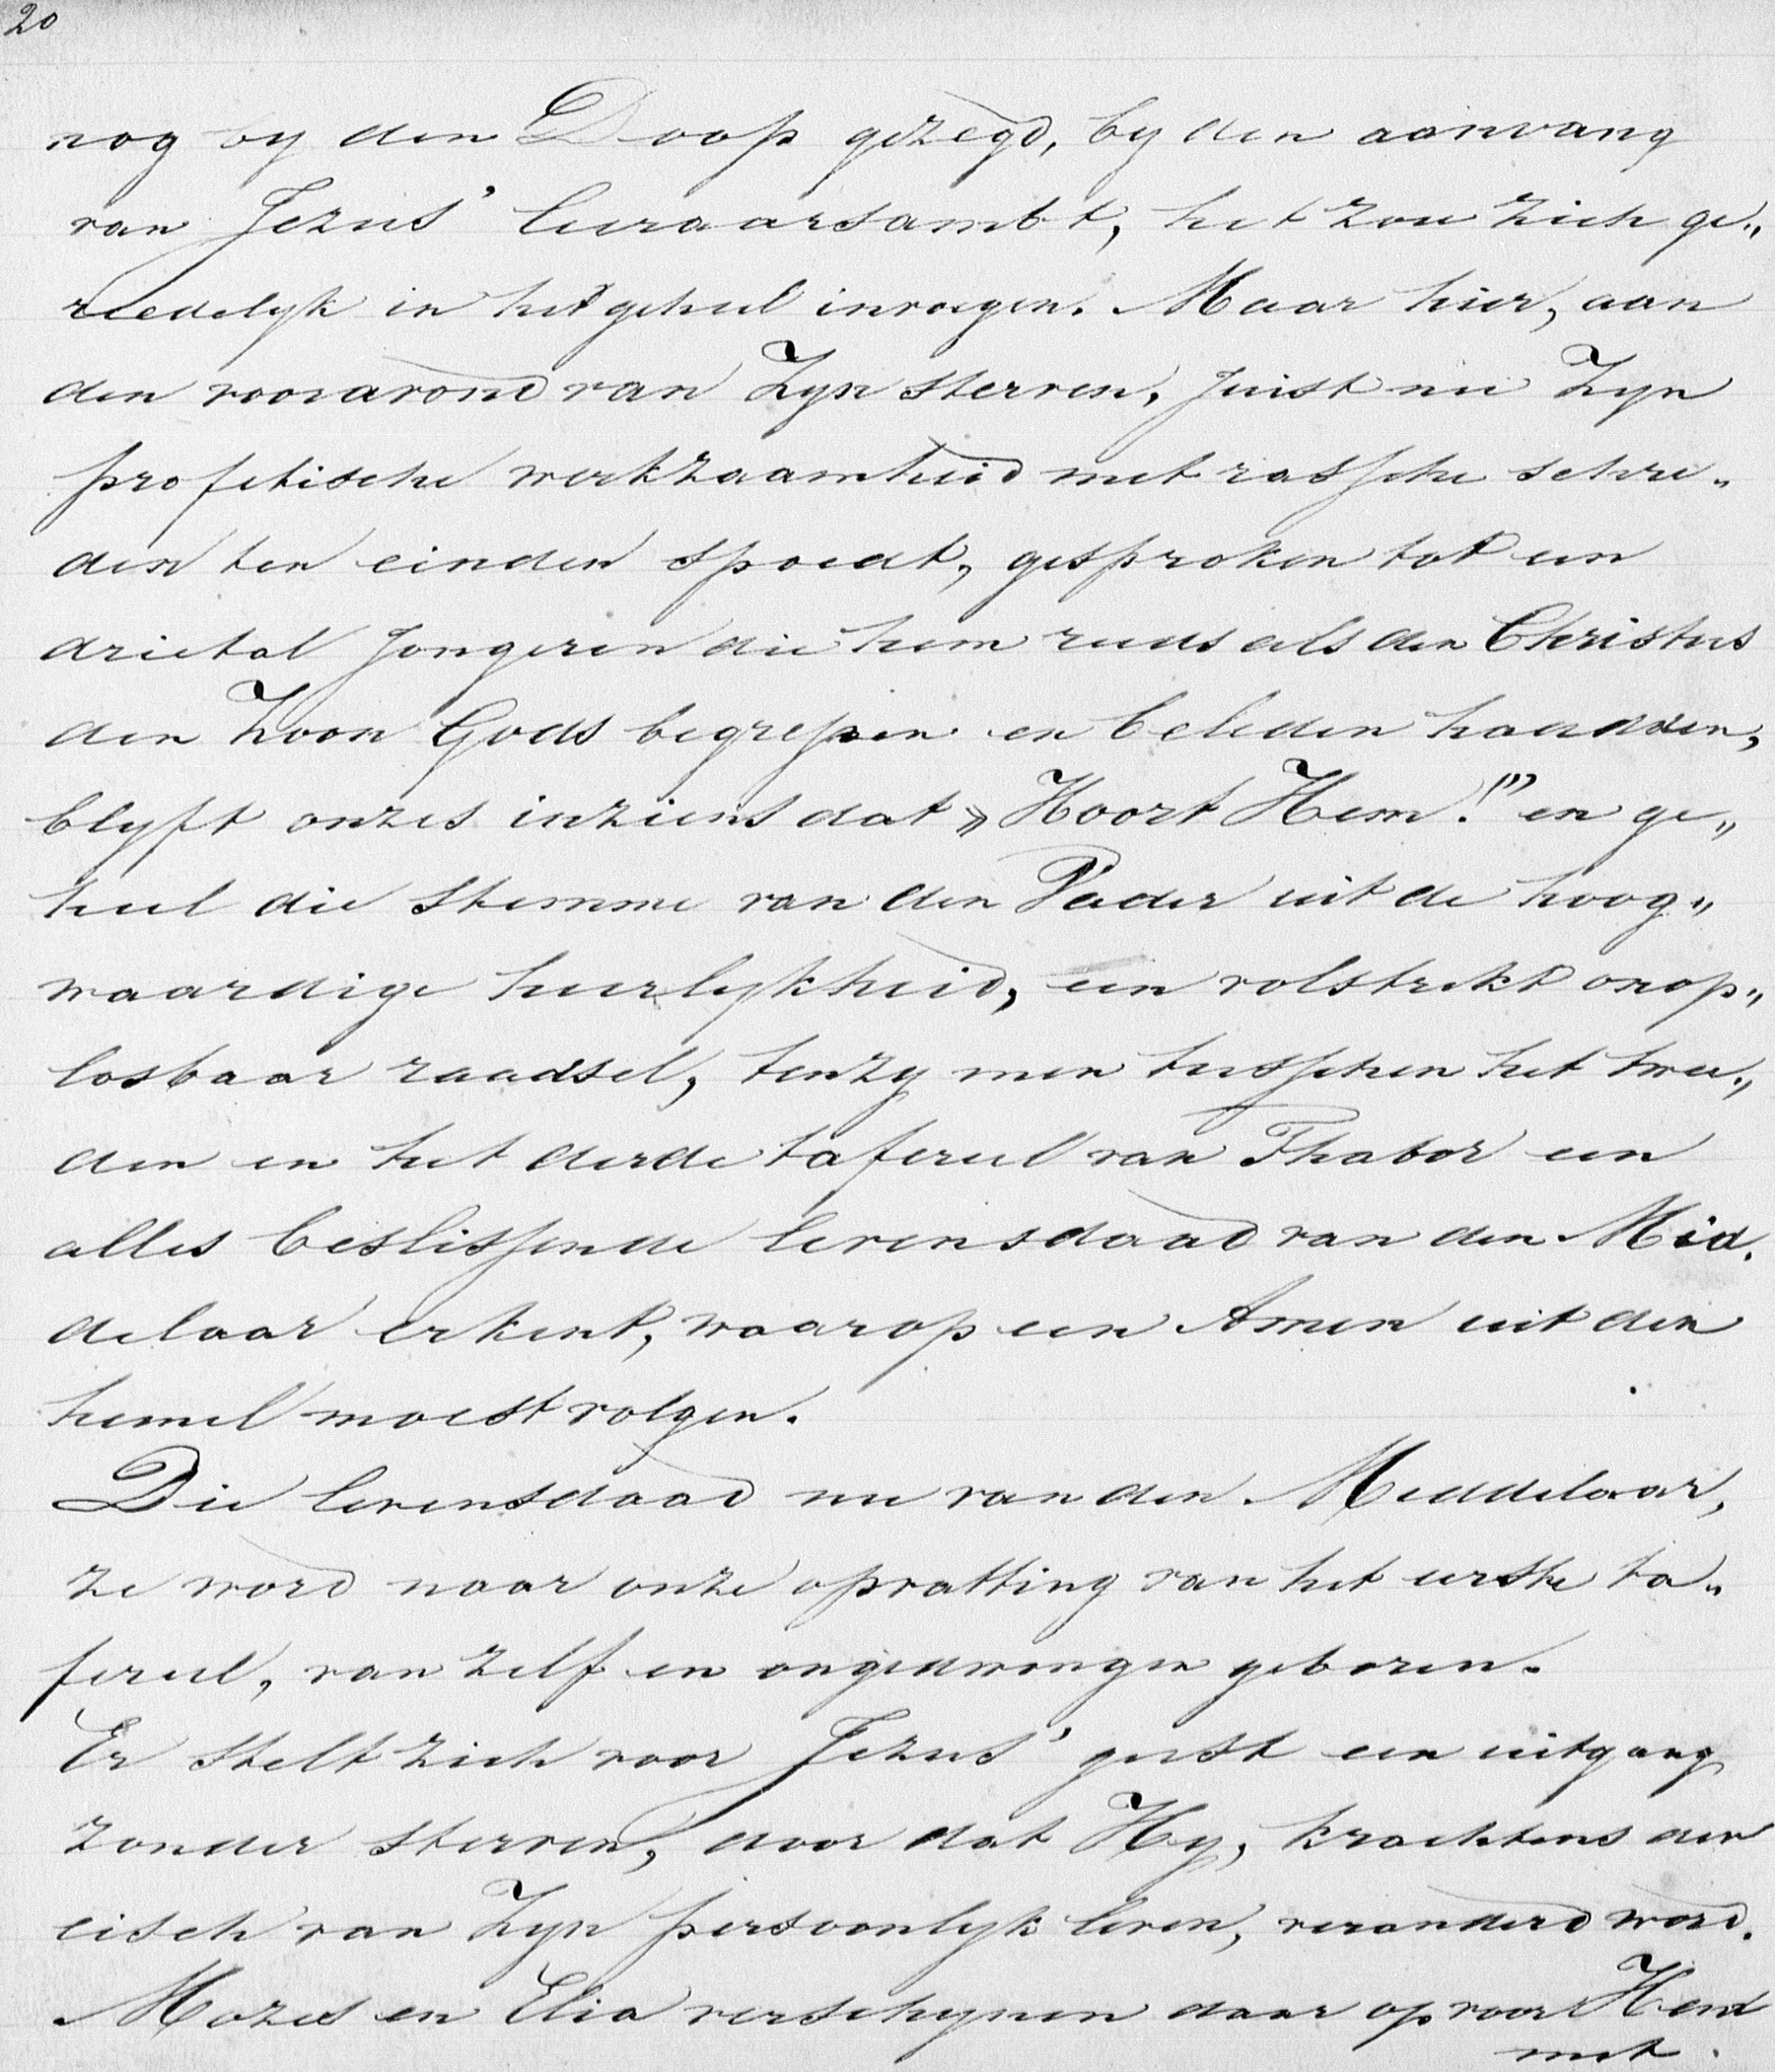 20
nog by den Doop gezegd, by den aanvang
van Jezus' leeraarsambt, het zou zich ge„
reedelyk in het geheel invoegen. Maar hier, aan
den vooravond van Zyn sterven, juist nu Zyn
profetische werkzaamheid met rassche schre„
den ten einden spoedt, gesproken tot een
drietal Jongeren die hem reeds als den Christus
den Zoon Gods begrepen en beleden hadden,
blyft onzes inziens dat » Hoort Hem!" en ge„
heel die stemme van den Vader uit de hoog„
waardige heerlykheid, een volstrekt onop„
losbaar raadsel, tenzy men tusschen het twee„
den en het derde tafereel van Thabor een
alles beslissende levensdaad van den Mid„
delaar erkent, waarop een Amen uit den
hemel moest volgen.
Die levensdaad nu van den Middelaar,
ze word naar onze opvatting van het eerste ta„
fereel, van zelf en ongedwongen geboren.
Er stelt zich voor Jezus' geest een uitgang
zonder sterven, door dat Hy, krachtens den
eisch van Zyn persoonlyk leven, veranderd word.
Mozes en Elia verschynen daar op voor Hem
met